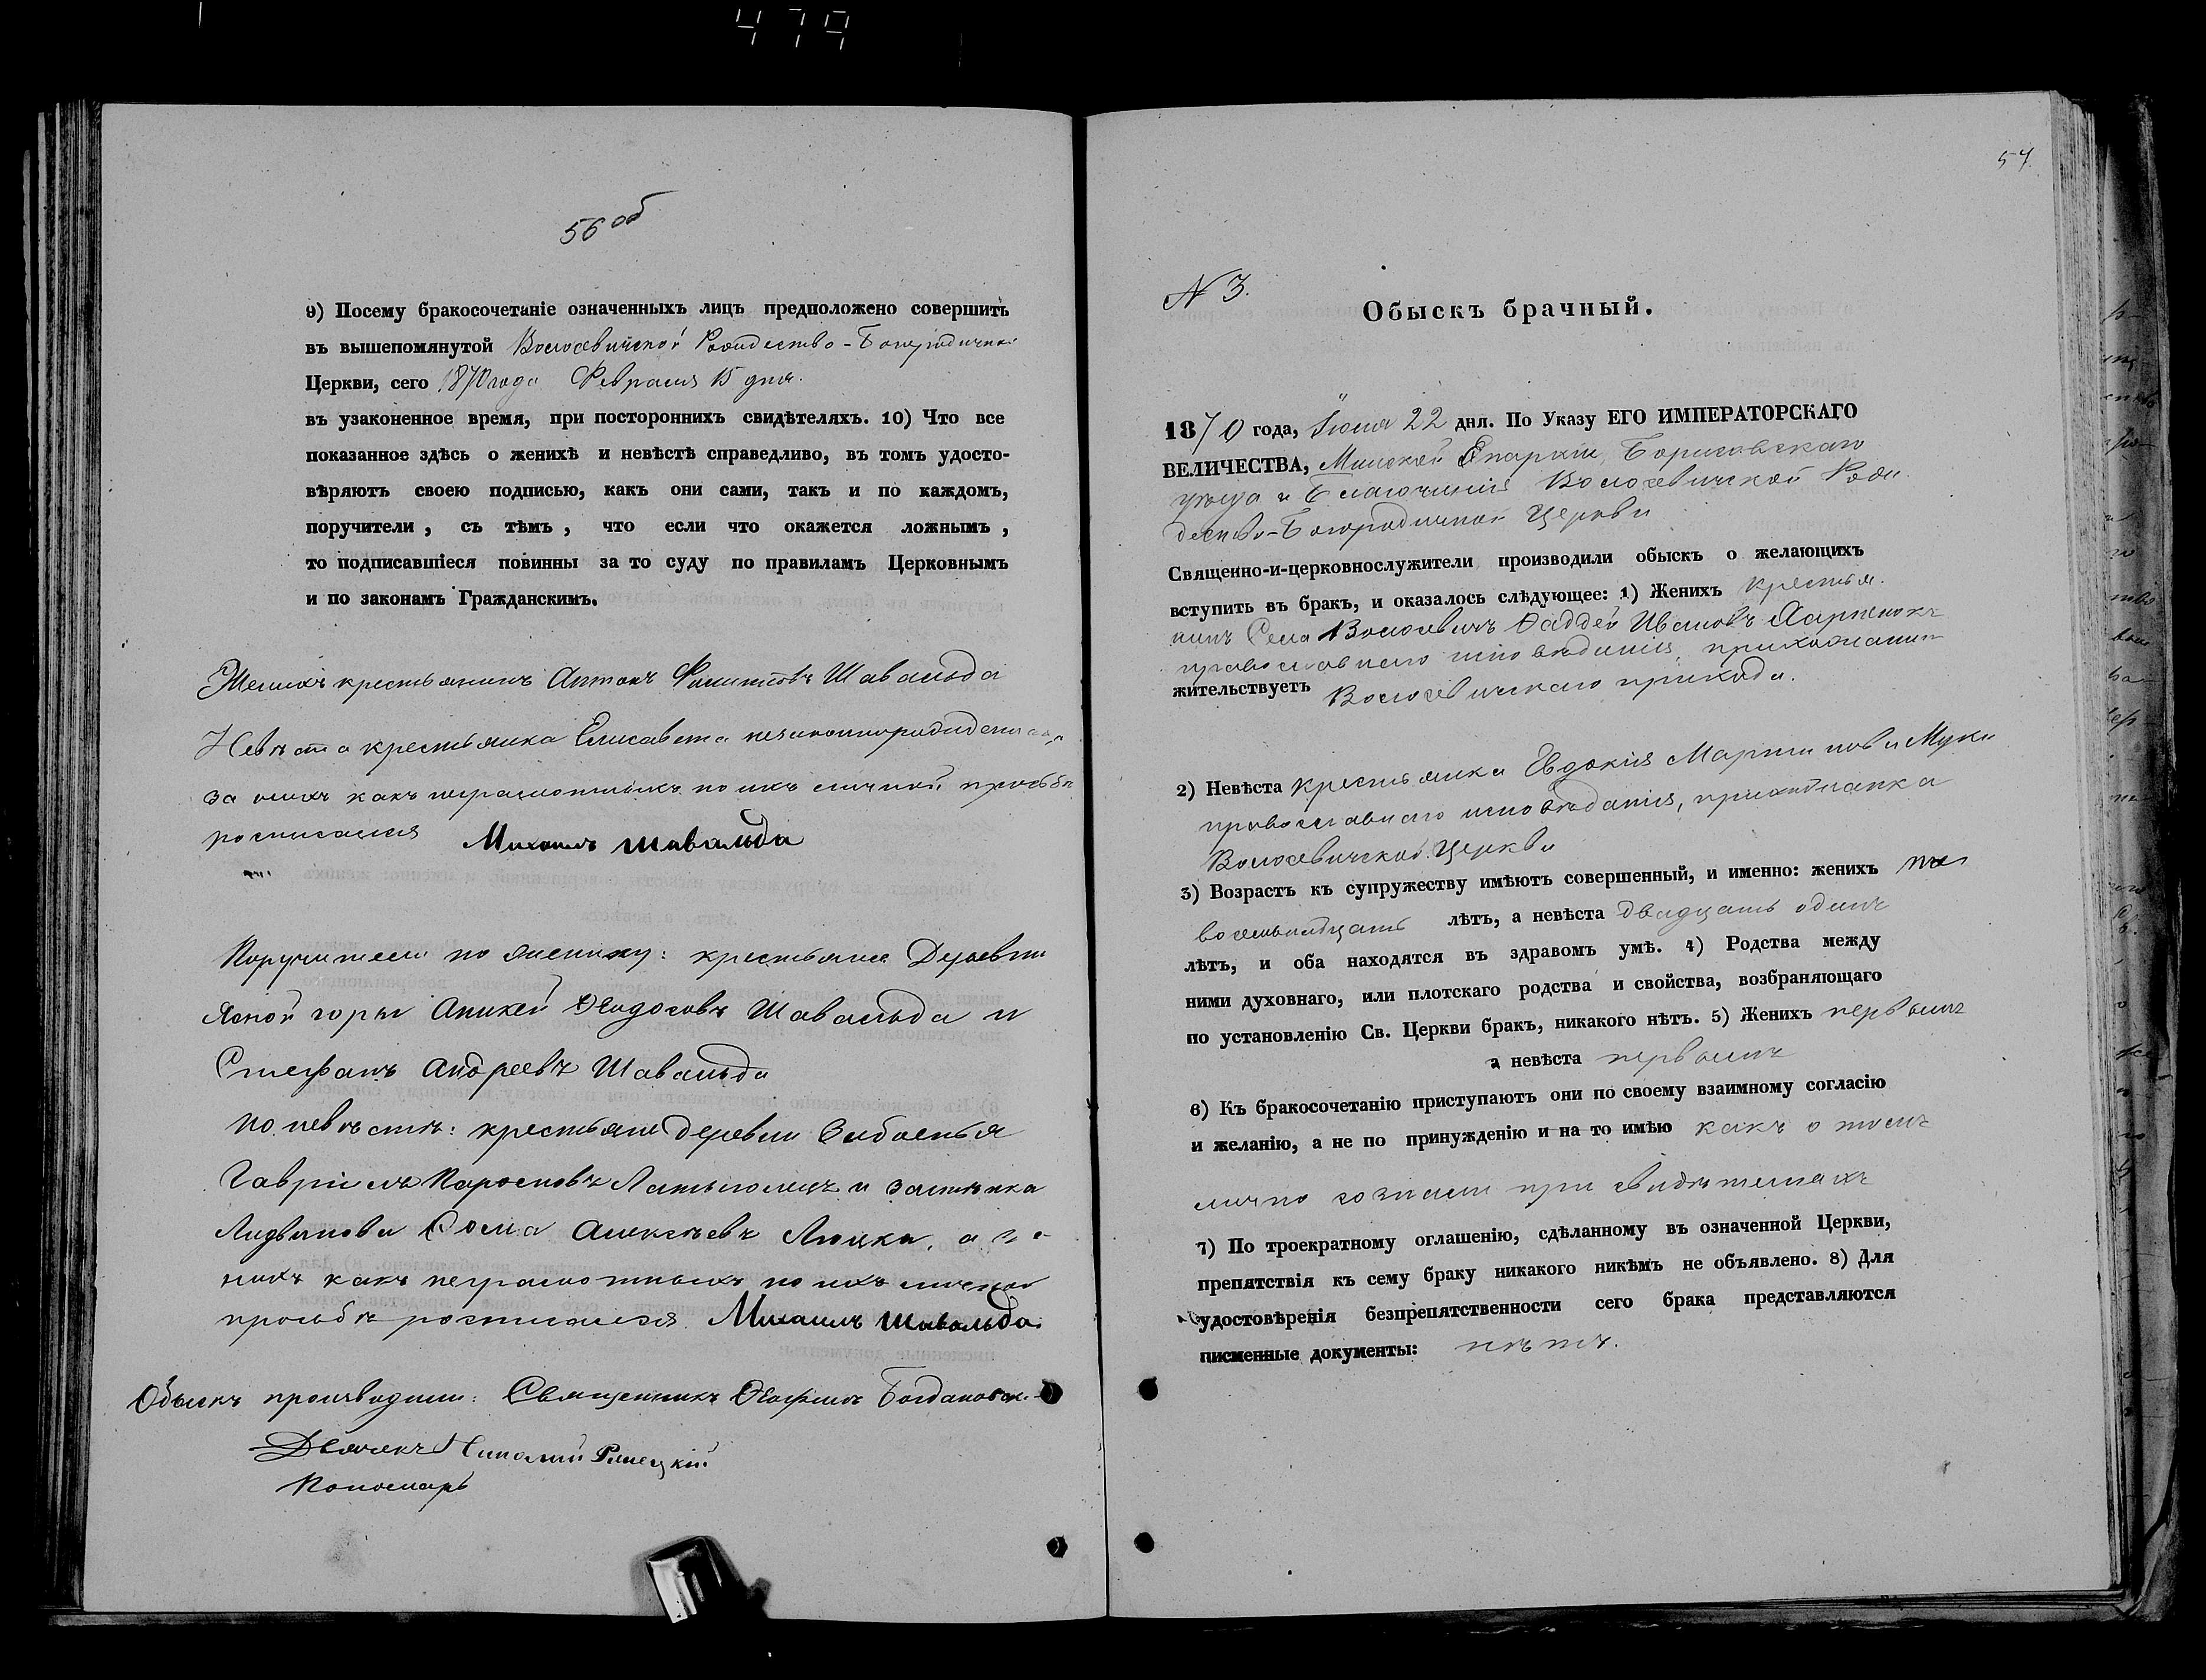 479
56 об
9) Посему бракосочетаніе означенныхъ лицъ предположено совершить
въ вышепомянутой Волосевичской Рождество-Богородичной
Церкви, сего 1870 года Февраля 15 дня.
въ узаконенное время, при постороннихъ свидѣтеляхъ. 10) Что все
показанное здѣсь о женихѣ и невѣстѣ справедливо, въ томъ удосто-
вѣряютъ своею подписью, какъ они сами, такъ и по каждомъ,
поручители, съ тѣмъ, что если что окажется ложнымъ,
то подписавшіеся повинны за то суду по правиламъ Церковнымъ
и по законамъ Гражданскимъ.
Женихъ крестьянинъ Антонъ Филиповъ Шавальда
Невѣста крестьянка Елисавета незаконнорожденная
за нихъ какъ неграмотныхъ по ихъ личной прозьбѣ
росписался Михаилъ Шавальда
Поручители по жениху: крестьяне Деревни
Ясной горы Аникей Ѳеодосовъ Шавальда и
Стефанъ Андреевъ Шавальда
По невѣстѣ: крестьяне деревни
Гавріилъ и застѣнка
Ѳома Алексѣевъ а за
нихъ какъ неграмотныхъ по ихъ личной
прозьбѣ росписался Михаилъ Шавальда.
Обыскъ производили: Священникъ
Дьячекъ Николай
Пономарь
57.
N 3.
Обыскъ брачный.
1870 года, Іюля 22 дня. По Указу ЕГО ИМПЕРАТОРСКАГО
ВЕЛИЧЕСТВА, Минской Епархіи, Борисовскаго
уѣзда и Благочинія Волосевичской Рож
дество-Богородичной Церкви
Священно-и-церковнослужители производили обыскъ о желающихъ
вступить въ бракъ, и оказалось слѣдующее: 1) Женихъ крестья
нинъ Села Волосевичъ Ѳаддей Ивановъ
православнаго исповѣданія, прихожанинъ
жительствуетъ Волосевичскаго прихода.
2) Невѣста крестьянка Евдокія Мартинова
православнаго исповѣданія, прихожанка
Волосевичской Церкви
3) Возрастъ къ супружеству имѣютъ совершенный, и именно: женихъ
восемьнадцать лѣтъ, а невѣста двадцать одинъ
лѣтъ, и оба находятся въ здравомъ умѣ. 4) Родства между
ними духовнаго, или плотскаго родства и свойства, возбраняющаго
по установленію Св. Церкви бракъ, никакого нѣтъ. 5) Женихъ первымъ
а невѣста первымъ
6) Къ бракосочетанію приступаютъ они по своему взаимному согласію
и желанію, а не по принужденію и на то имѣю какъ о томъ
лично сознали при свидѣтеляхъ
7) По троекратному оглашенію, сдѣланному въ означенной Церкви,
препятствія къ сему браку никакого никѣмъ не объявлено. 8) Для
удостовѣренія безпрепятственности сего брака представляются
писменные документы: нѣтъ.